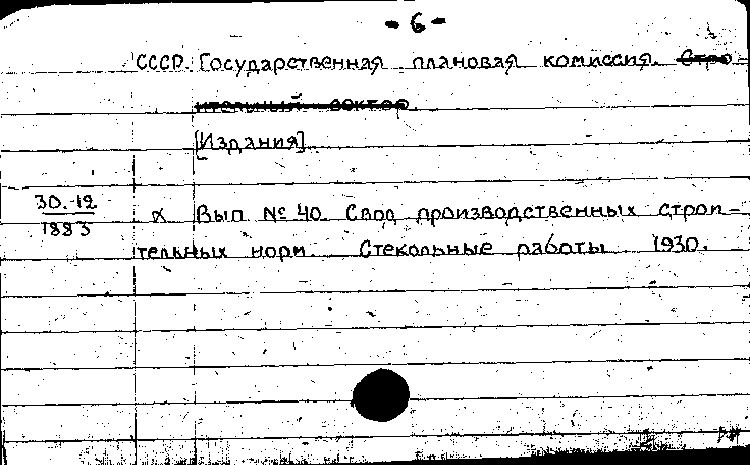 - 6 -
СССР. Государственная плановая комиссия. Строи-
тельный сектор.
[Издания]
30.-12
1883
х Вып № 40. Свод производственных строи-
тельных норм. Стекольные работы 1930.